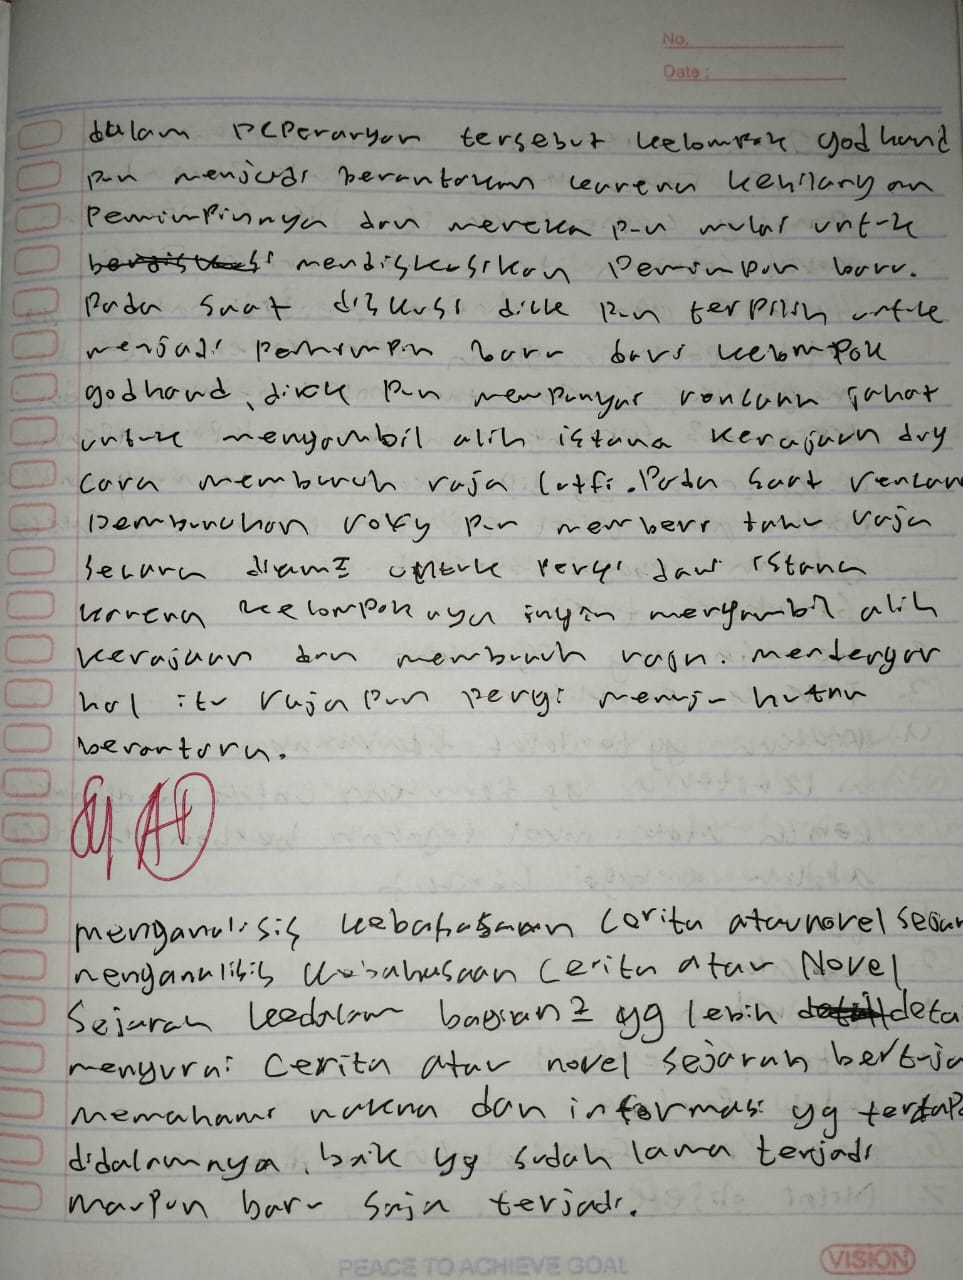 No.
Date :
dalam peperangan tersebut kelompok godhand
pun menjadi berantakan karena kehilangan
Pemimpinnya dan mereka pun mulai untuk
mendiskusikan Pemimpin baru.
Pada saat diskusi dick pun terpilih untuk
menjadi pemimpin baru dari kelompok
godhand, dick pun mempunyai rencana jahat
untuk mengambil alih istana kerajaan dry
cara membunuh raja lutfi. Pada saat rencan
Pembunuhan roky pun memberi tahu raja
secara diam2 untuk pergi dari istana
karena kelompoknya ingin mengambil alih
kerajaan dan membunuh raja. mendengar
hal itu raja pun pergi menuju hutan
berantara.
A+
menganalisis kebahasaan cerita atau novel sejar
menganalisis kebahasaan cerita atau Novel
Sejarah kedalam bagian2 yg lebih deta
mengurai cerita atau novel sejarah bertuju
memahami makna dan informasi yg terdap
didalamnya, baik yg sudah lama terjadi
maupun baru saja terjadi.
PEACE TO ACHIEVE GOAL
VISION